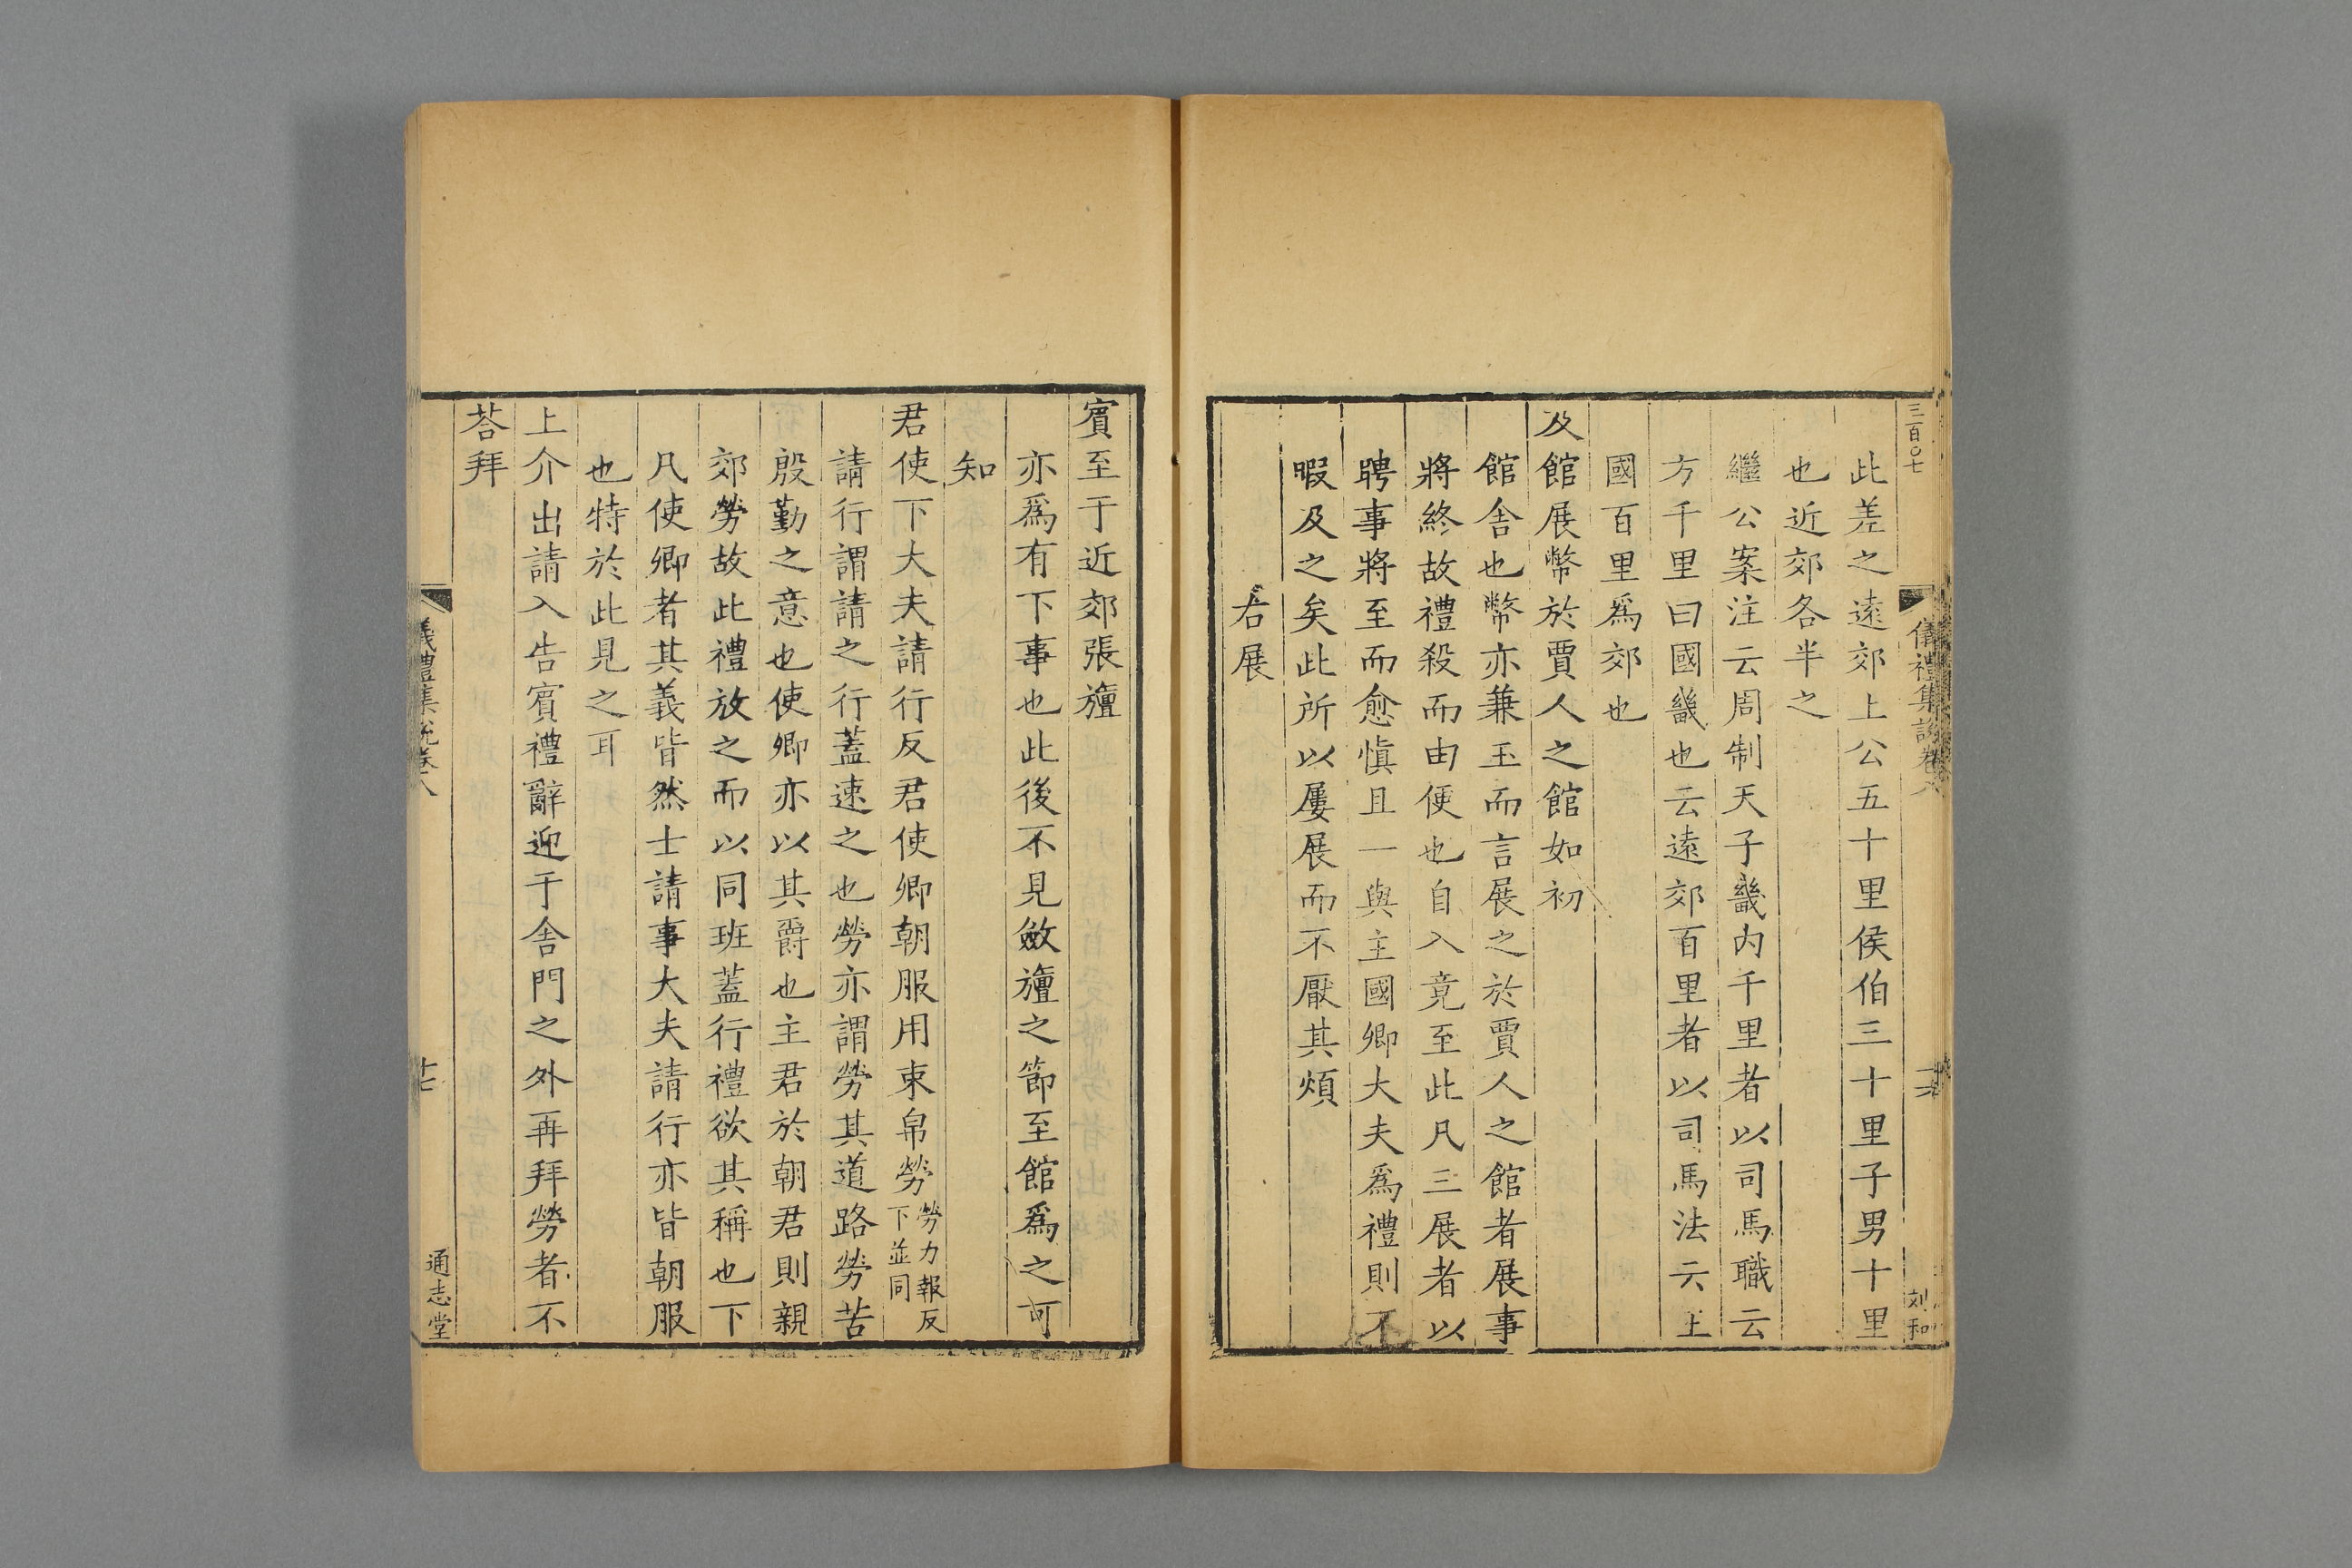 三百〇七
儀禮集說卷八
十六
刘和
此差之遠郊上公五十里侯伯三十里子男十里
也近郊各半之
繼公案注云周制天子畿內千里者以司馬職云
方千里曰國畿也云遠郊百里者以司馬法云王
國百里爲郊也
及館展幣於賈人之館如初
館舍也幣亦兼玉而言展之於賈人之館者展事
將終故禮殺而由便也自入竟至此凡三展者以
聘事將至而愈慎且一與主國卿大夫爲禮則不
暇及之矣此所以屢展而不厭其煩
右展
賓至于近郊張旜
亦爲有下事也此後不見斂旜之節至館爲之可
知
君使下大夫請行反君使卿朝服用束帛勞勞力報反下並同
請行謂請之行蓋速之也勞亦謂勞其道路勞苦
殷勤之意也使卿亦以其爵也主君於朝君則親
郊勞故此禮放之而以同班蓋行禮欲其稱也下
凡使卿者其義皆然士請事大夫請行亦皆朝服
也特於此見之耳
上介出請入告賓禮辭迎于舍門之外再拜勞者不
荅拜
儀禮集說卷八
十七
通志堂